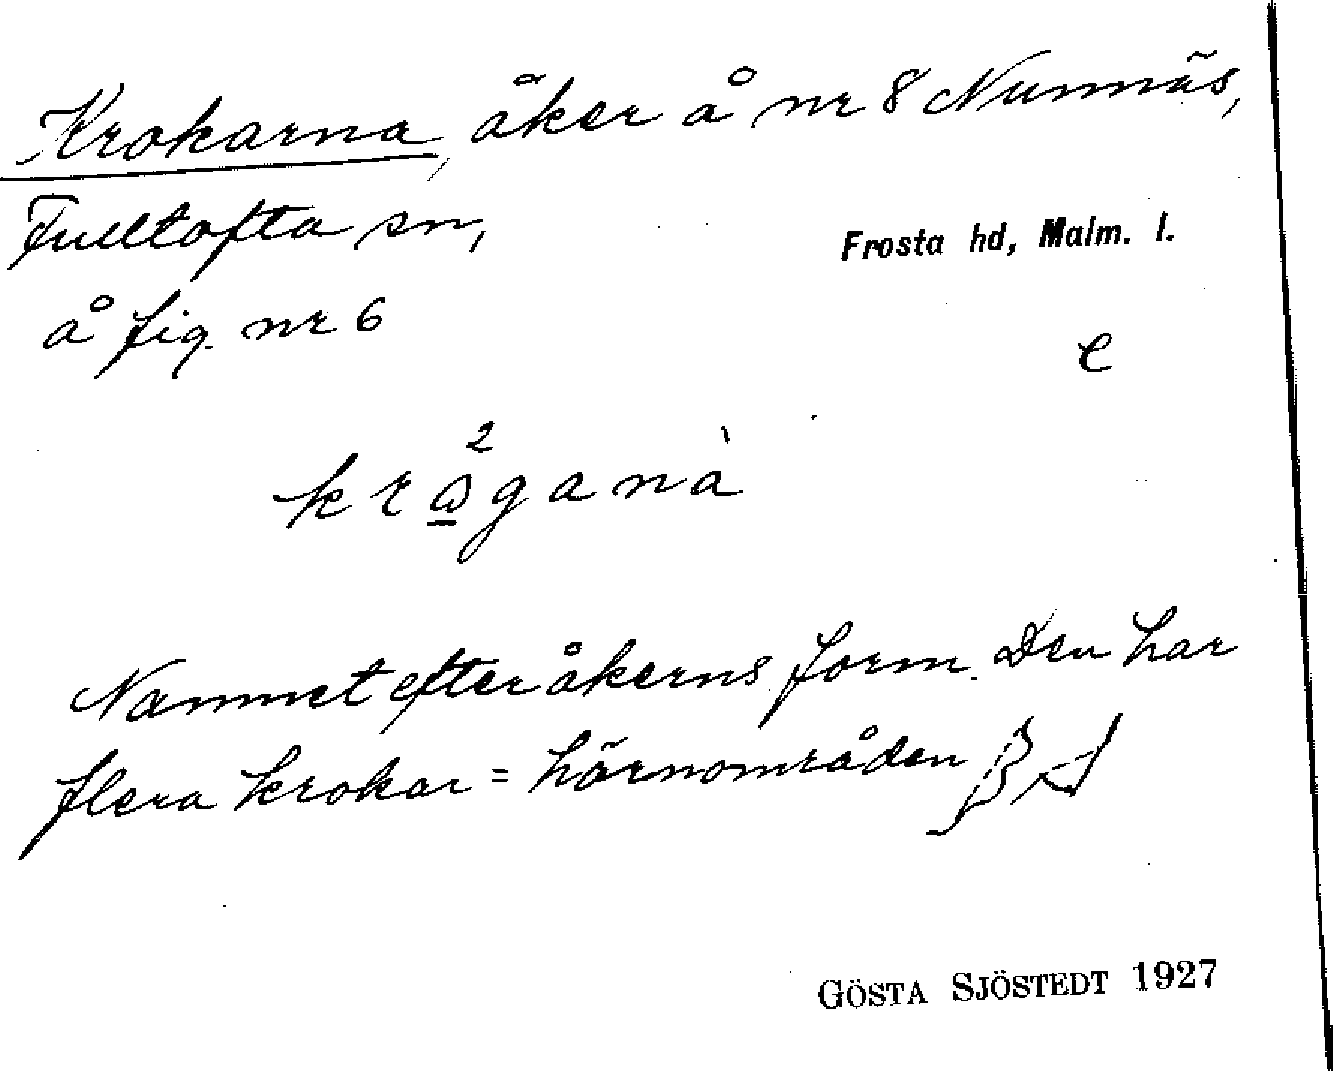 Krokarna, åker å nr 8 Nunnäs,
Fulltofta sn,
Frosta hd, Malm. l.
å fig. nr 6
e
2
krɷganà
Namnet efter åkerns form. Den har
flera krokar = hörnområden
GÖSTA SJÖSTEDT 1927